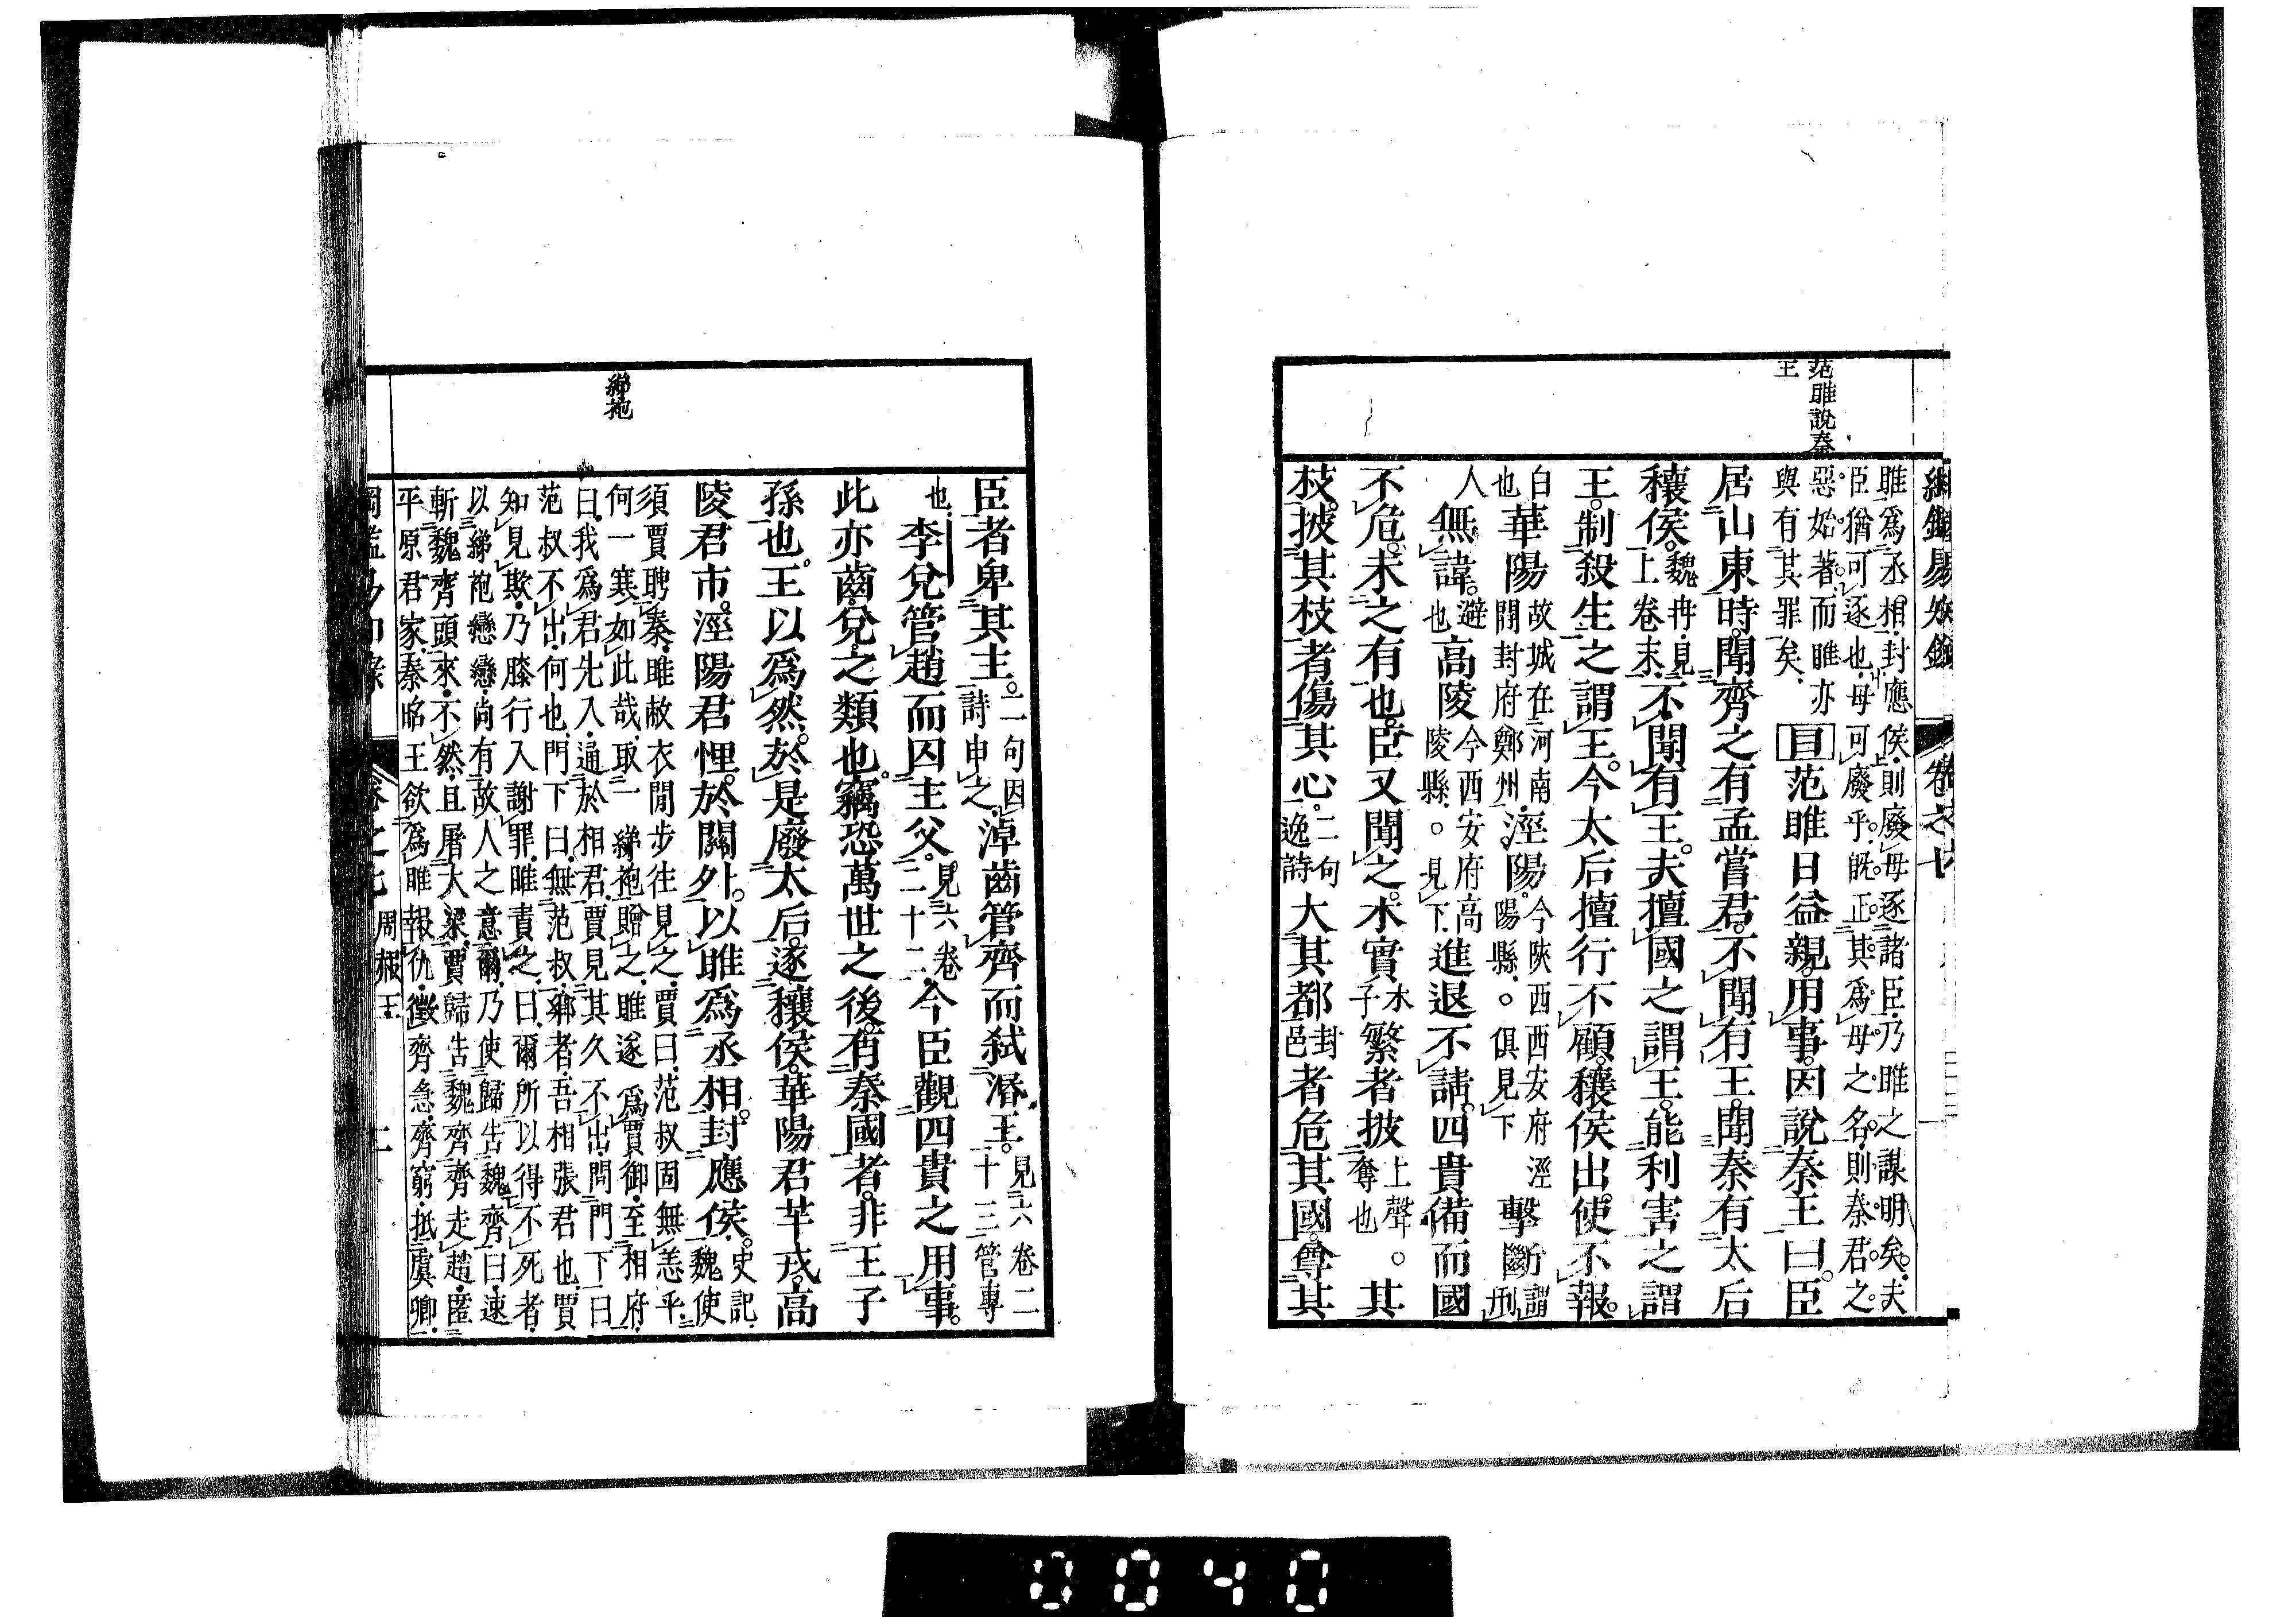 范雎說秦
王
綱鑑易知錄
卷之七
雎爲丞相封應侯則廢母逐諸臣乃雎之謀明矣夫
臣猶可逐也母可廢乎旣正其爲母之名則秦君之
惡始著而雎亦
與有其罪矣
目范雎日益親用事因說秦王曰臣
居山東時聞齊之有孟嘗君不聞有王聞秦有太后
穰侯魏冉見上卷末不聞有王夫擅國之謂王能利害之謂
王制殺生之謂王今太后擅行不顧穰侯出使不報
白也華陽故城在河南開封府鄭州涇陽今陝西西安府涇陽縣○俱見下擊斷謂刑
人無諱避也高陵今西安府高陵縣○見下進退不請四貴備而國
不危未之有也臣又聞之木實木子繁者披上聲○奪也其
枝披其枝者傷其心二句逸詩大其都封邑者危其國尊其
臣者卑其主二句因詩申之淖齒管齊而弑湣王見六卷二十三管專
也李兌管趙而囚主父見六卷二十二今臣觀四貴之用事
此亦齒兌之類也竊恐萬世之後有秦國者非王子
孫也王以爲然於是廢太后逐穰侯華陽君芈戎高
陵君市涇陽君悝於關外以雎爲丞相封應侯史記魏使
須賈聘秦雎敝衣閒步往見之賈曰范叔固無恙乎
何一寒如此哉取一綈袍贈之雎遂爲賈御至相府
曰我爲君先入通於相君賈見其久不出問門下曰
范叔不出何也門下曰無范叔鄉者吾相張君也賈
知見欺乃膝行入謝罪雎責之曰爾所以得不死者
以綈袍戀戀尚有故人之意爾乃使歸告魏齊曰速
斬魏齊頭來不然且屠大梁賈歸告魏齊齊走趙匿
平原君家秦昭王欲爲雎報仇徵齊急齊窮抵虞卿
綈袍
綱鑑易知錄
卷之七 周赧王